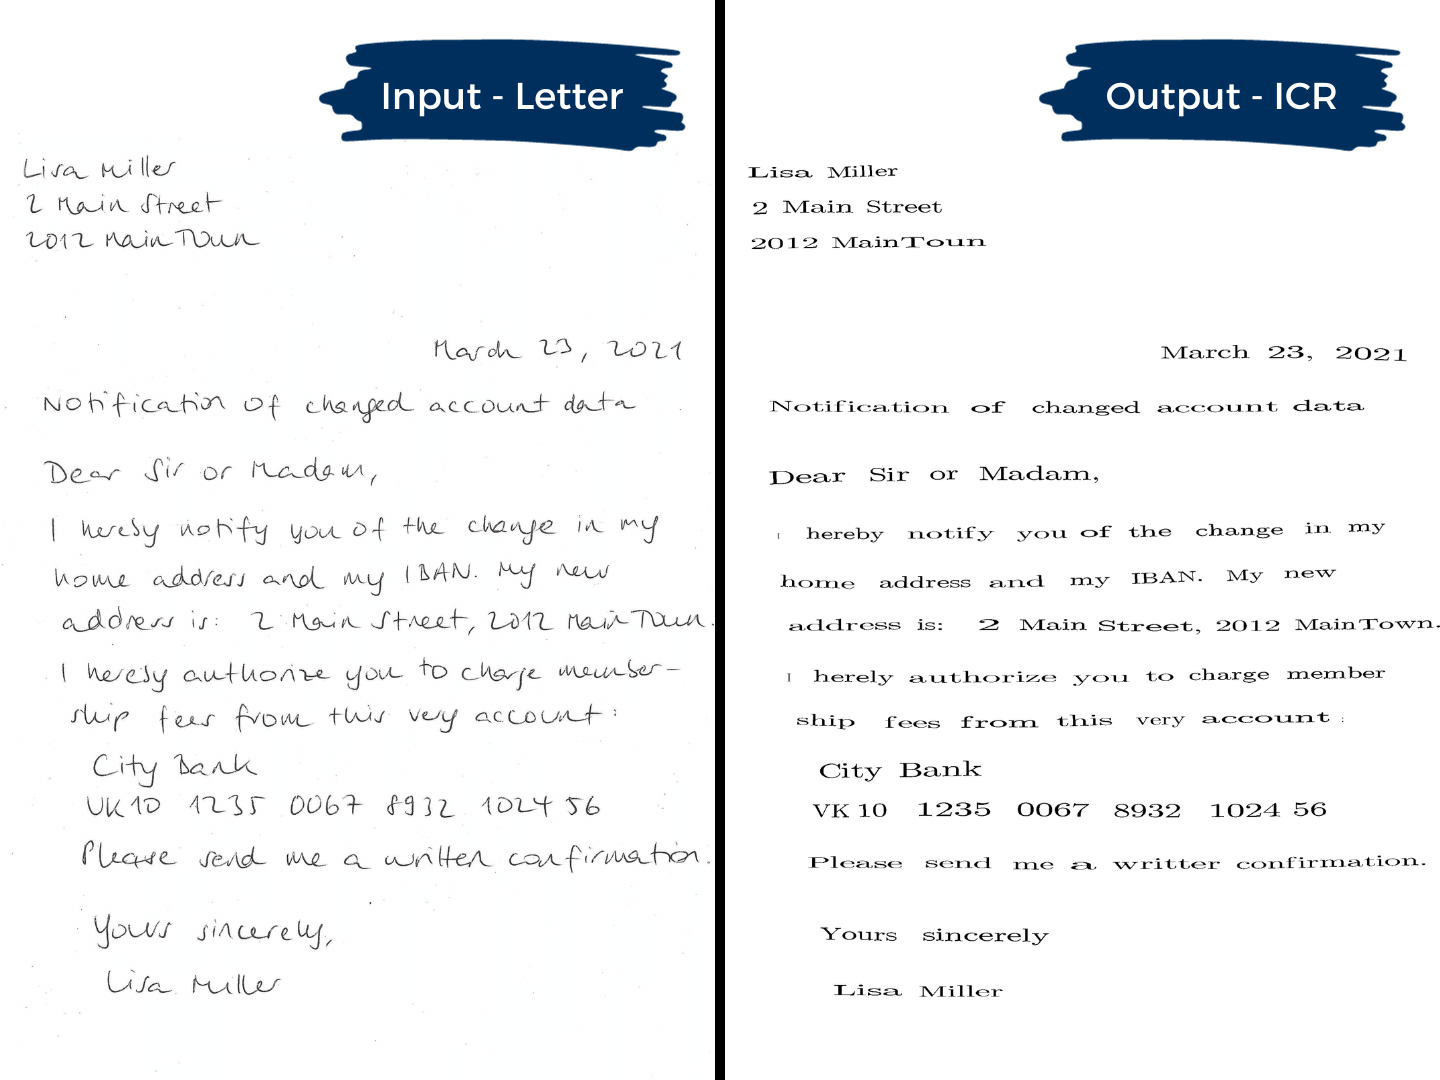 Input - Letter
Lisa Miller
2 Main Street
2012 MainTown
March 23, 2021
Notification of changed account data
Dear Sir or Madam,
I hereby notify you of the change in my
home address and my IBAN. My new
address is: 2 Main Street, 2012 MainTown.
I hereby authorize you to charge member-
ship fees from this very account:
City Bank
UK10 1235 0067 8932 1024 56
Please send me a written confirmation.
Yours sincerely,
Lisa Miller
Output - ICR
Lisa Miller
2 Main Street
2012 MainToun
March 23, 2021
Notification of changed account data
Dear Sir or Madam,
I hereby notify you of the change in my
home address and my IBAN. My new
address is: 2 Main Street, 2012 MainTown.
I herely authorize you to charge member
ship fees from this very account :
City Bank
VK 10 1235 0067 8932 1024 56
Please send me a writter confirmation.
Yours sincerely
Lisa Miller